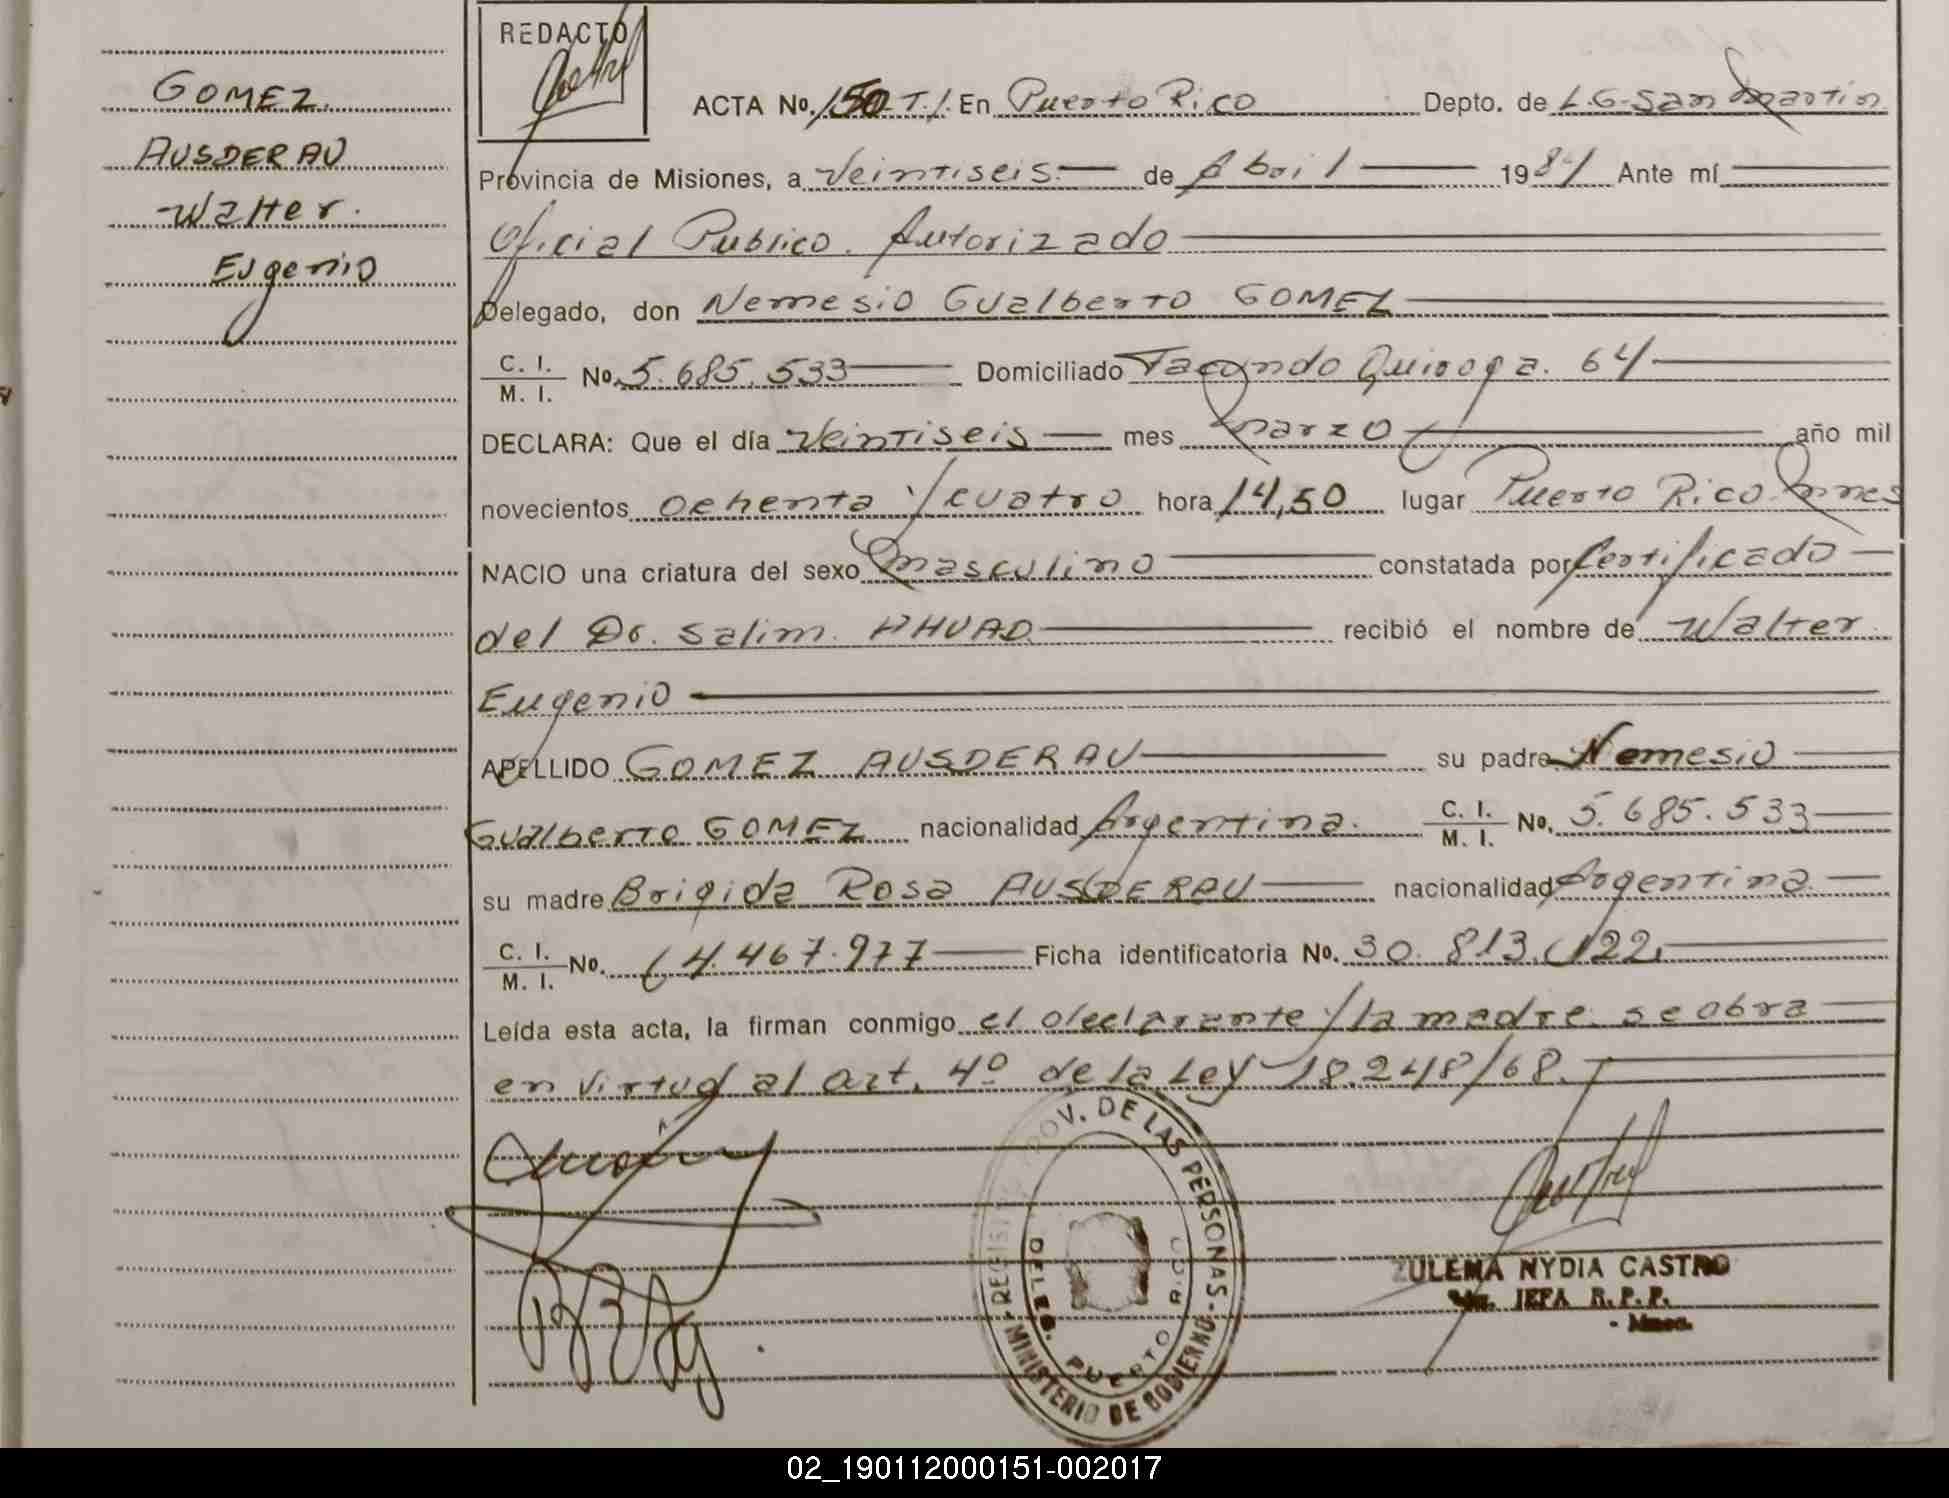 GOMEZ
AUSDERAU
Walter
Eugenio
REDACTO
ACTA No. 150 T.1. En Puerto Rico Depto. de L.G. San Martin
Provincia de Misiones, a Veintiseis de Abril 1984 Ante mí
Oficial Publico Autorizado
Delegado, don Nemesio Gualberto GOMEZ
C. I.
M. I. No. 5.685.533 Domiciliado Facundo Quiroga. 64
DECLARA: Que el día Veintiseis mes marzo año mil
novecientos ochenta y cuatro hora 14,50 lugar Puerto Rico mnes
NACIO una criatura del sexo masculino constatada por Certificado
del Dr. Salim recibió el nombre de Walter
Eugenio
APELLIDO GOMEZ AUSDERAU su padre Nemesio
Gualberto GOMEZ nacionalidad Argentina. C. I.
M. I. No. 5.685.533
su madre Brigida Rosa AUSDERAU nacionalidad Argentina
C. I.
M. I. No. 14.467.977 Ficha identificatoria No. 30.813.122
Leída esta acta, la firman conmigo el declarante y la madre. se obra
en virtud al art. 4º de la Ley 18.248/68.
REGISTRO PROV. DE LAS PERSONAS - MINISTERIO DE GOBIERNO -
DELEG. PUERTO RICO
ZULEMA NYDIA CASTRO
JEFA R.P.P.
02_190112000151-002017